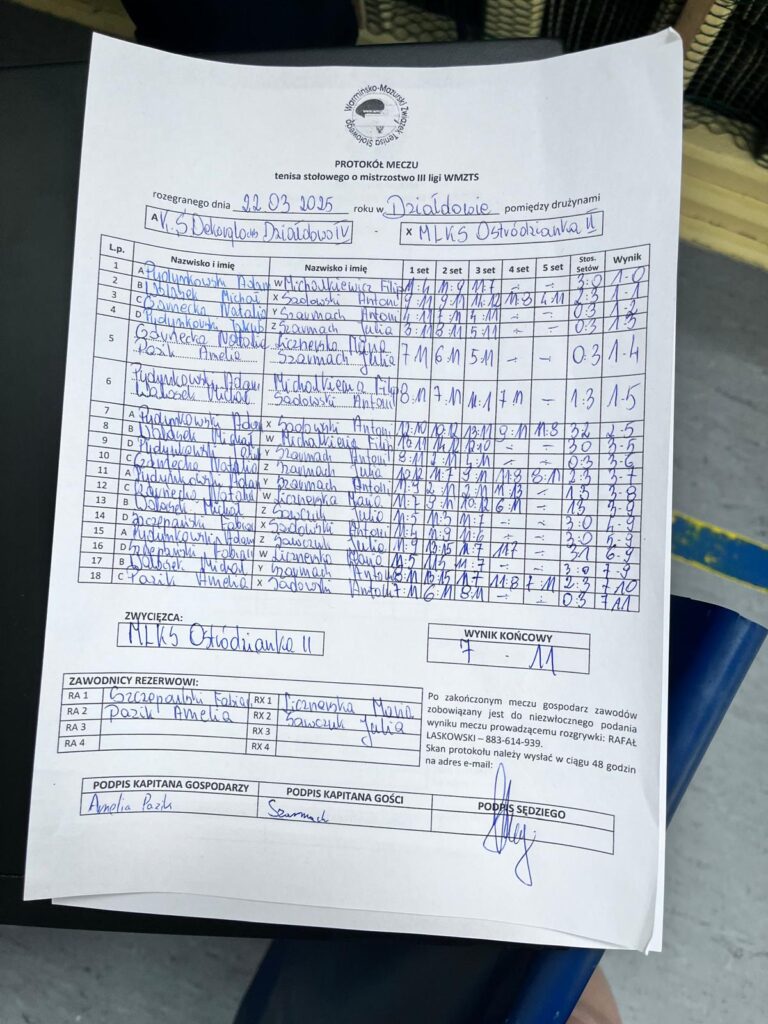 Warmińsko-Mazurski Związek Tenisa Stołowego
PROTOKÓŁ MECZU
tenisa stołowego o mistrzostwo III ligi WMZTS
rozegranego dnia 22.03 2025 roku w Działdowie pomiędzy drużynami
A K.S Dekorglass Działdowo IV - X MLKS Ostródzianka II
L.p. Nazwisko i imię Nazwisko i imię 1 set 2 set 3 set 4 set 5 set Stos. Setów Wynik
1 A Pydynkowski Adam W Michałkiewicz Filip 11:4 11:9 11:7 - - 3:0 1-0
2 B Wałasek Michał X Sadowski Antoni 9:11 9:11 11:8 4:11 2:3 1-1
3 C Czarnecka Natalia Y Szarmach Antoni 4:11 4:11 - - 0:3 1-2
4 D Pydynkowski Jakub Z Szarmach Julia 3:11 8:11 5:11 - - 0:3 1-3
5 Czarnecka Natalia Licznerska Maria
Pazik Amelia Szarmach Julia 7:11 6:11 5:11 - - 0:3 1-4
6 Pydynkowski Adam Michałkiewicz Filip
Wałasek Michał Sadowski Antoni 8:11 7:11 11:1 7:11 - 1:3 1-5
7 A Pydynkowski Adam X Sadowski Antoni 12:10 10:12 13:11 9:11 11:8 3:2 2-5
8 B Wałasek Michał W Michałkiewicz Filip 3:0 3-5
9 D Pydynkowski Y Szarmach Antoni 8:11 2:11 0:3 3-6
10 C Czarnecka Natalia Z Szarmach Julia 11:7 9:11 11:8 8:11 2:3 3-7
11 A Pydynkowski Adam Y Szarmach Antoni 11:9 2:11 8:11 11:13 - 1:3 3-8
12 C Czarnecka Natalia W Licznerska Maria 11:7 9:11 10:12 6:11 - 1:3 3-9
13 B Wałasek Michał Z Sawczuk Julia 11:5 11:3 11:7 - - 3:0 4-9
14 D Szczepański Fabian X Sadowski Antoni 11:4 11:9 11:6 - - 3:0 5-9
15 A Pydynkowski Adam Z Sawczuk Julia 13:15 11:7 11:7 - 3:1 6-9
16 D Szczepański Fabian W Licznerska Maria 11:5 11:7 - - 3:0 7-9
17 B Wałasek Michał Y Szarmach Antoni 8:11 11:8 7:11 2:3 7-10
18 C Pazik Amelia X Sadowski Antoni 7:11 6:11 8:11 - - 0:3 7-11
ZWYCIĘZCA:
MLKS Ostródzianka II
WYNIK KOŃCOWY
7 - 11
ZAWODNICY REZERWOWI:
RA 1 Szczepański Fabian RX 1 Licznerska Maria
RA 2 Pazik Amelia RX 2 Sawczuk Julia
RA 3 RX 3
RA 4 RX 4
Po zakończonym meczu gospodarz zawodów
zobowiązany jest do niezwłocznego podania
wyniku meczu prowadzącemu rozgrywki: RAFAŁ
LASKOWSKI – 883-614-939.
Skan protokołu należy wysłać w ciągu 48 godzin
na adres e-mail:
PODPIS KAPITANA GOSPODARZY PODPIS KAPITANA GOŚCI PODPIS SĘDZIEGO
Amelia Pazik Szarmach